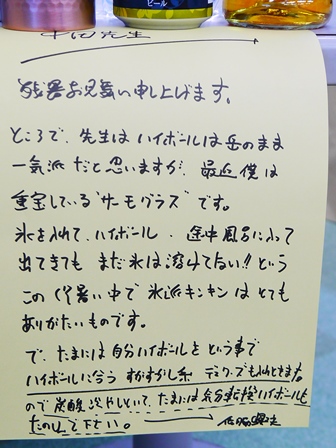 ビール
先生
残暑お見舞い申し上げます。
ところで、先生は ハイボールは缶のまま
一気派だと思いますが、最近僕は
重宝している"サーモグラス"です。
氷を入れて、ハイボール、途中風呂に入って
出てきても まだ氷は溶けてない!! という
この 暑い中で 氷 キンキンは とても
ありがたいものです。
で、たまには自分ハイボールを という事で
ハイボールに合う すかすかし系 も入れときます。
ので 炭酸 冷やしといて、たまには ハイボールも
たのしんで下さい。